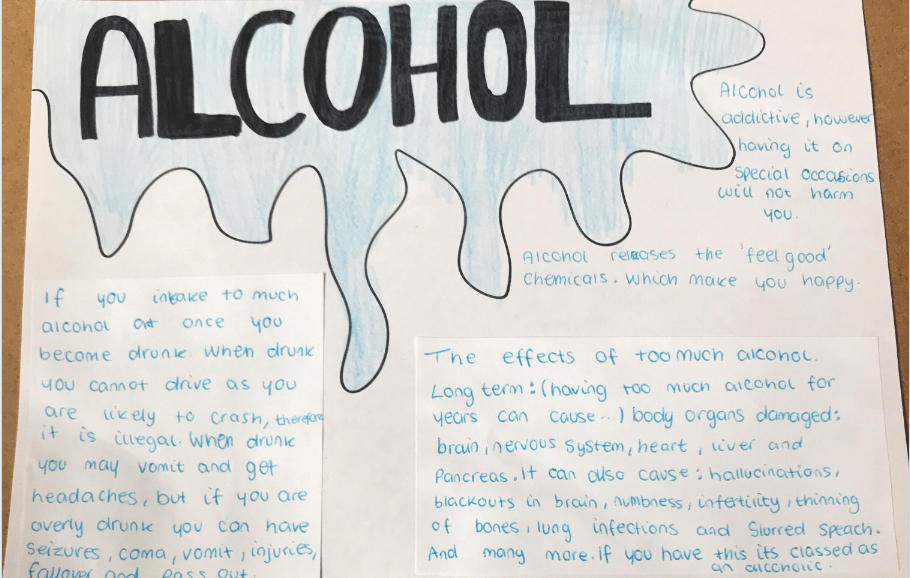 ALCOHOL
Alcohol is
addictive, however
having it on
special occasions
will not harm
you.
Alcohol releases the 'feel good'
Chemicals. Which make you happy.
If you intake to much
alcohol at once you
become drunk. When drunk
you cannot drive as you
are likely to crash, therefore
it is illegal. When drunk
you may vomit and get
headaches, but if you are
overly drunk you can have
seizures, coma, vomit, injuries,
fallover and pass out.
The effects of too much alcohol.
Long term: (having too much alcohol for
years can cause...) body organs damaged:
brain, nervous system, heart, liver and
Pancreas. It can also cause: hallucinations,
blackouts in brain, numbness, infertility, thinning
of bones, lung infections and slurred speach.
And many more. If you have this its classed as
an alcoholic.